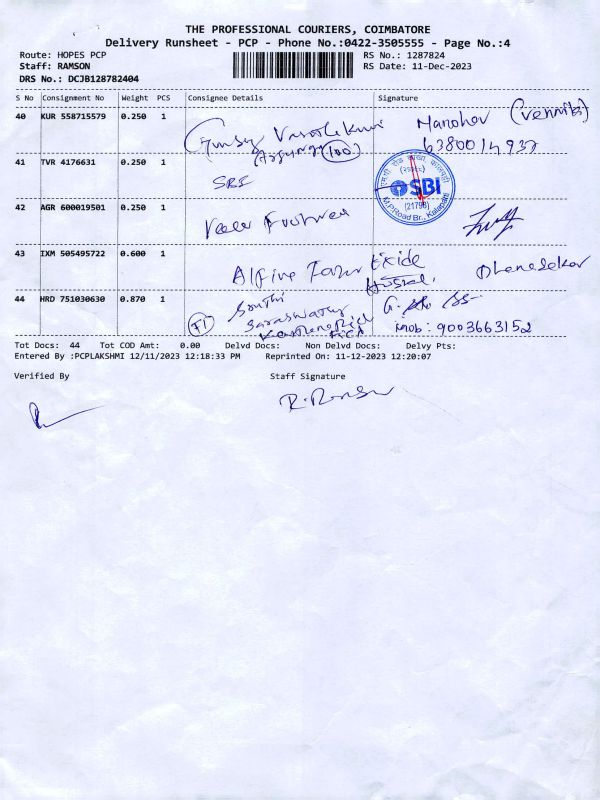 THE PROFESSIONAL COURIERS, COIMBATORE
Delivery Runsheet - PCP - Phone No.:0422-3505555 - Page No.:4
Route: HOPES PCP
RS No.: 1287824
Staff: RAMSON
RS Date: 11-Dec-2023
DRS No.: DCJB128782404
S No Consignment No Weight PCS Consignee Details Signature
40 KUR 558715579 0.250 1
Manohar
(100)
6380014937
41 TVR 4176631 0.250 1
SBI
SBI
(21798)
M.P.Road Br., Kalapatti
42 AGR 600019501 0.250 1
43 IXM 505495722 0.600 1
Exide
44 HRD 751030630 0.870 1
Saraswathy
Mob: 9003663152
Tot Docs: 44 Tot COD Amt: 0.00 Delvd Docs: Non Delvd Docs: Delvy Pts:
Entered By :PCPLAKSHMI 12/11/2023 12:18:33 PM Reprinted On: 11-12-2023 12:20:07
Verified By Staff Signature